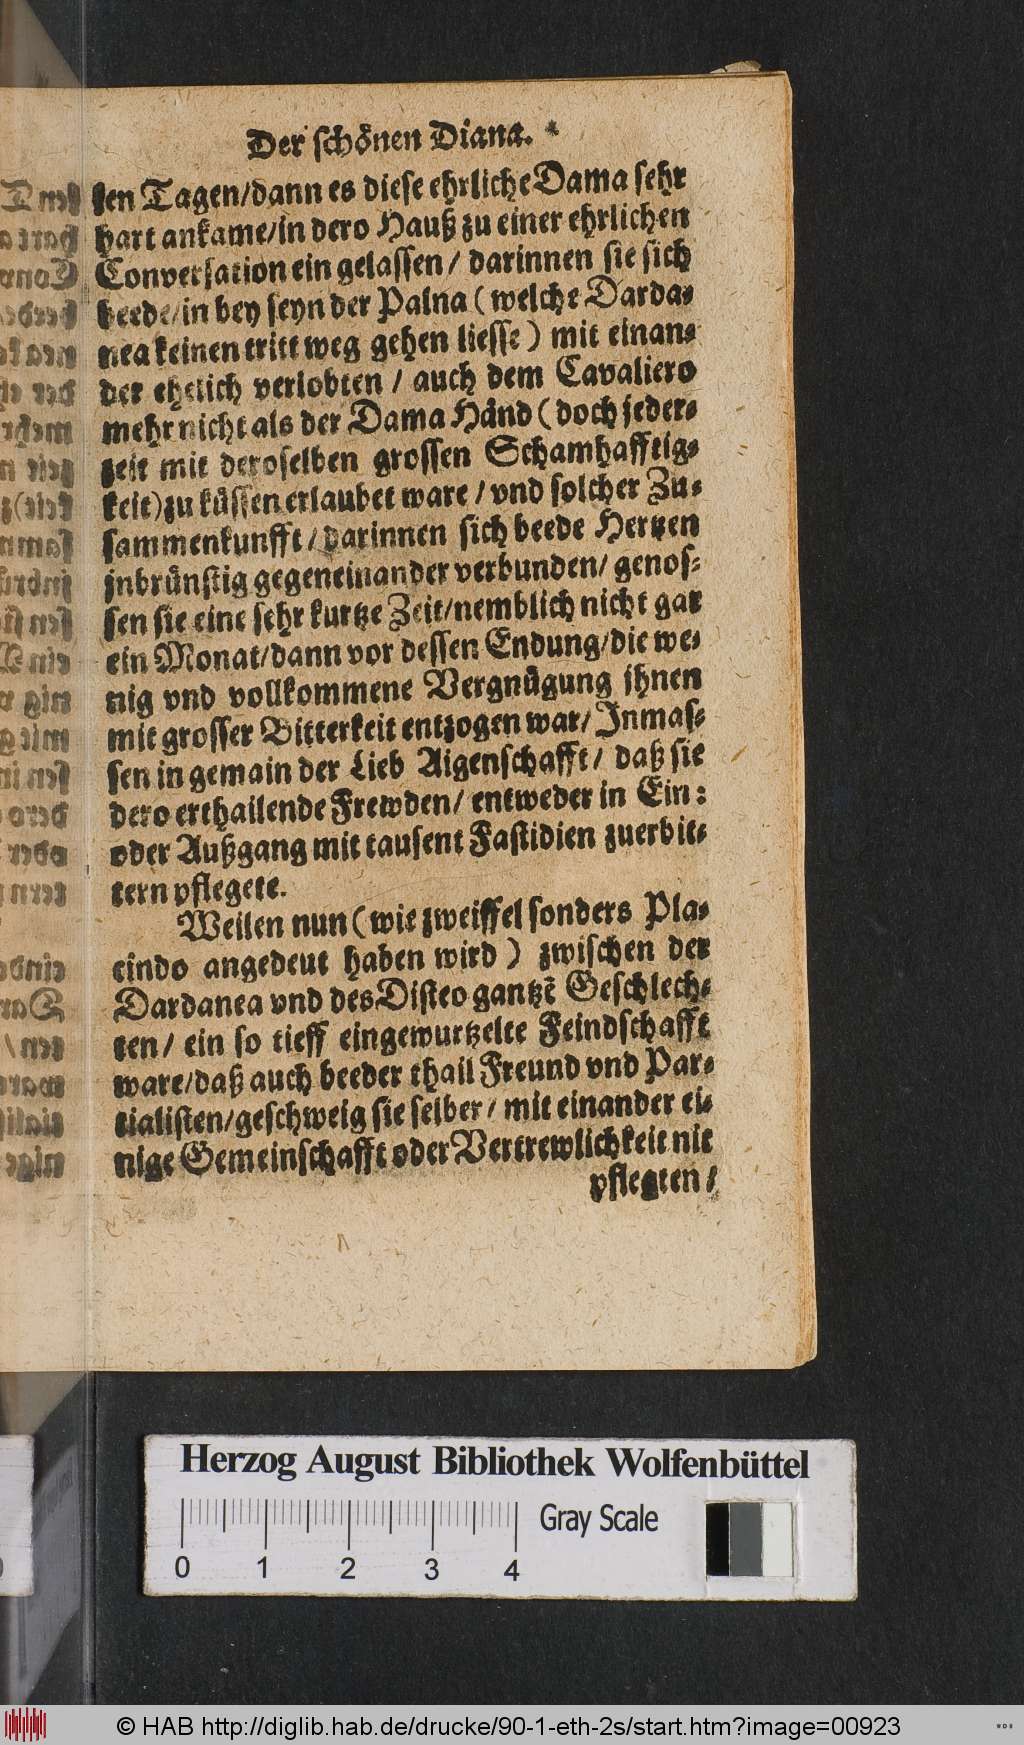 Der schönen Diana.
sen Tagen/dann es diese ehrliche Dama sehr
hart ankame/in dero Hauß zu einer ehrlichen
Conversation ein gelassen/ darinnen sie sich
beede/in bey seyn der Palna (welche Darda-
nea keinen tritt weg gehen liesse) mit einan-
der ehelich verlobten / auch dem Cavaliero
mehr nicht als der Dama Händ (doch jeder-
zeit mit deroselben grossen Schamhafftig-
keit) zu küssen erlaubet ware / vnd solcher Zu-
sammenkunfft/ darinnen sich beede Hertzen
jnbrünstig gegeneinander verbunden/ genos-
sen sie eine sehr kurtze Zeit/nemblich nicht gar
ein Monat/dann vor dessen Endung/die we-
nig vnd vollkommene Vergnügung ihnen
mit grosser Bitterkeit entzogen war/ Jnmas-
sen in gemain der Lieb Aigenschafft/ daß sie
dero erthailende Frewden/ entweder in Ein:
oder Außgang mit tausent Fastidien zuerbit-
tern pflegete.
Weilen nun (wie zweiffel sonders Pla-
cindo angedeut haben wird) zwischen der
Dardanea vnd des Disteo gantzē Geschlech-
ten/ ein so tieff eingewurtzelte Feindschafft
ware/daß auch beeder thail Freund vnd Par-
tialisten/geschweig sie selber/ mit einander ei-
nige Gemeinschafft oder Vertrewlichkeit nit
pflegten/
Herzog August Bibliothek Wolfenbüttel
Gray Scale
0 1 2 3 4
© HAB http://diglib.hab.de/drucke/90-1-eth-2s/start.htm?image=00923